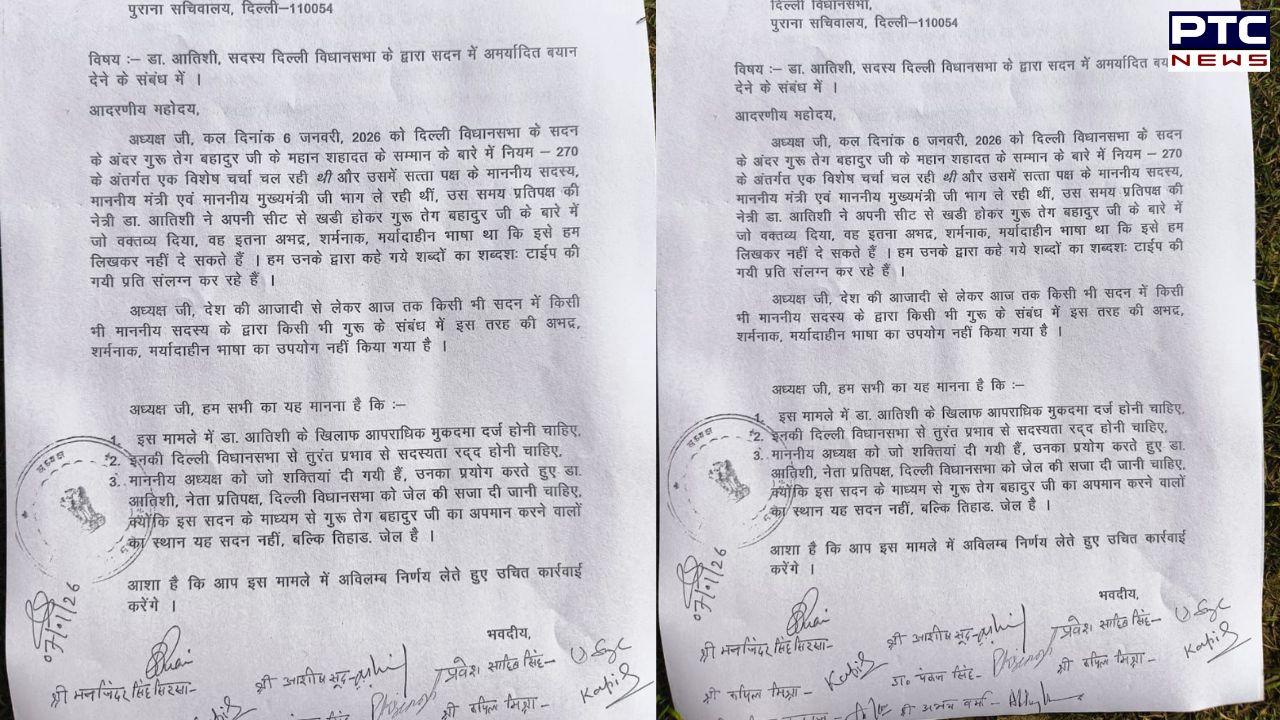 पुराना सचिवालय, दिल्ली–110054
विषय :– डा. आतिशी, सदस्य दिल्ली विधानसभा के द्वारा सदन में अमर्यादित बयान
देने के संबंध में ।
आदरणीय महोदय,
अध्यक्ष जी, कल दिनांक 6 जनवरी, 2026 को दिल्ली विधानसभा के सदन
के अंदर गुरू तेग बहादुर जी के महान शहादत के सम्मान के बारे में नियम – 270
के अंतर्गत एक विशेष चर्चा चल रही थी और उसमें सत्ता पक्ष के माननीय सदस्य,
माननीय मंत्री एवं माननीय मुख्यमंत्री जी भाग ले रही थीं, उस समय प्रतिपक्ष की
नेत्री डा. आतिशी ने अपनी सीट से खडी होकर गुरू तेग बहादुर जी के बारे में
जो वक्तव्य दिया, वह इतना अभद्र, शर्मनाक, मर्यादाहीन भाषा था कि इसे हम
लिखकर नहीं दे सकते हैं । हम उनके द्वारा कहे गये शब्दों का शब्दशः टाईप की
गयी प्रति संलग्न कर रहे हैं ।
अध्यक्ष जी, देश की आजादी से लेकर आज तक किसी भी सदन में किसी
भी माननीय सदस्य के द्वारा किसी भी गुरू के संबंध में इस तरह की अभद्र,
शर्मनाक, मर्यादाहीन भाषा का उपयोग नहीं किया गया है ।
अध्यक्ष जी, हम सभी का यह मानना है कि :–
1. इस मामले में डा. आतिशी के खिलाफ आपराधिक मुकदमा दर्ज होनी चाहिए,
2. इनकी दिल्ली विधानसभा से तुरंत प्रभाव से सदस्यता रद्द होनी चाहिए,
3. माननीय अध्यक्ष को जो शक्तियां दी गयी हैं, उनका प्रयोग करते हुए डा.
आतिशी, नेता प्रतिपक्ष, दिल्ली विधानसभा को जेल की सजा दी जानी चाहिए,
क्योंकि इस सदन के माध्यम से गुरू तेग बहादुर जी का अपमान करने वालों
का स्थान यह सदन नहीं, बल्कि तिहाड. जेल है ।
आशा है कि आप इस मामले में अविलम्ब निर्णय लेते हुए उचित कार्रवाई
करेंगे ।
भवदीय,
07/01/26
श्री मनजिंदर सिंह सिरसा–
श्री आशीष सूद–
प्रवेश साहिब सिंह–
श्री कपिल मिश्रा–
Kapil
दिल्ली विधानसभा,
पुराना सचिवालय, दिल्ली–110054
PTC
NEWS
विषय :– डा. आतिशी, सदस्य दिल्ली विधानसभा के द्वारा सदन में अमर्यादित
देने के संबंध में ।
आदरणीय महोदय,
अध्यक्ष जी, कल दिनांक 6 जनवरी, 2026 को दिल्ली विधानसभा के सदन
के अंदर गुरू तेग बहादुर जी के महान शहादत के सम्मान के बारे में नियम – 270
के अंतर्गत एक विशेष चर्चा चल रही थी और उसमें सत्ता पक्ष के माननीय सदस्य,
माननीय मंत्री एवं माननीय मुख्यमंत्री जी भाग ले रही थीं, उस समय प्रतिपक्ष की
नेत्री डा. आतिशी ने अपनी सीट से खडी होकर गुरू तेग बहादुर जी के बारे में
जो वक्तव्य दिया, वह इतना अभद्र, शर्मनाक, मर्यादाहीन भाषा था कि इसे हम
लिखकर नहीं दे सकते हैं । हम उनके द्वारा कहे गये शब्दों का शब्दशः टाईप की
गयी प्रति संलग्न कर रहे हैं ।
अध्यक्ष जी, देश की आजादी से लेकर आज तक किसी भी सदन में किसी
भी माननीय सदस्य के द्वारा किसी भी गुरू के संबंध में इस तरह की अभद्र,
शर्मनाक, मर्यादाहीन भाषा का उपयोग नहीं किया गया है ।
अध्यक्ष जी, हम सभी का यह मानना है कि :–
1. इस मामले में डा. आतिशी के खिलाफ आपराधिक मुकदमा दर्ज होनी चाहिए,
2. इनकी दिल्ली विधानसभा से तुरंत प्रभाव से सदस्यता रद्द होनी चाहिए,
3. माननीय अध्यक्ष को जो शक्तियां दी गयी हैं, उनका प्रयोग करते हुए डा.
आतिशी, नेता प्रतिपक्ष, दिल्ली विधानसभा को जेल की सजा दी जानी चाहिए,
क्योंकि इस सदन के माध्यम से गुरू तेग बहादुर जी का अपमान करने वालों
का स्थान यह सदन नहीं, बल्कि तिहाड. जेल है ।
आशा है कि आप इस मामले में अविलम्ब निर्णय लेते हुए उचित कार्रवाई
करेंगे ।
भवदीय,
07/01/26
श्री मनजिंदर सिंह सिरसा–
श्री आशीष सूद–
प्रवेश साहिब सिंह–
श्री कपिल मिश्रा–
Kapil
डा० पंकज सिंह–
श्री कपिल मिश्रा–
Kapil
श्री अभय वर्मा–